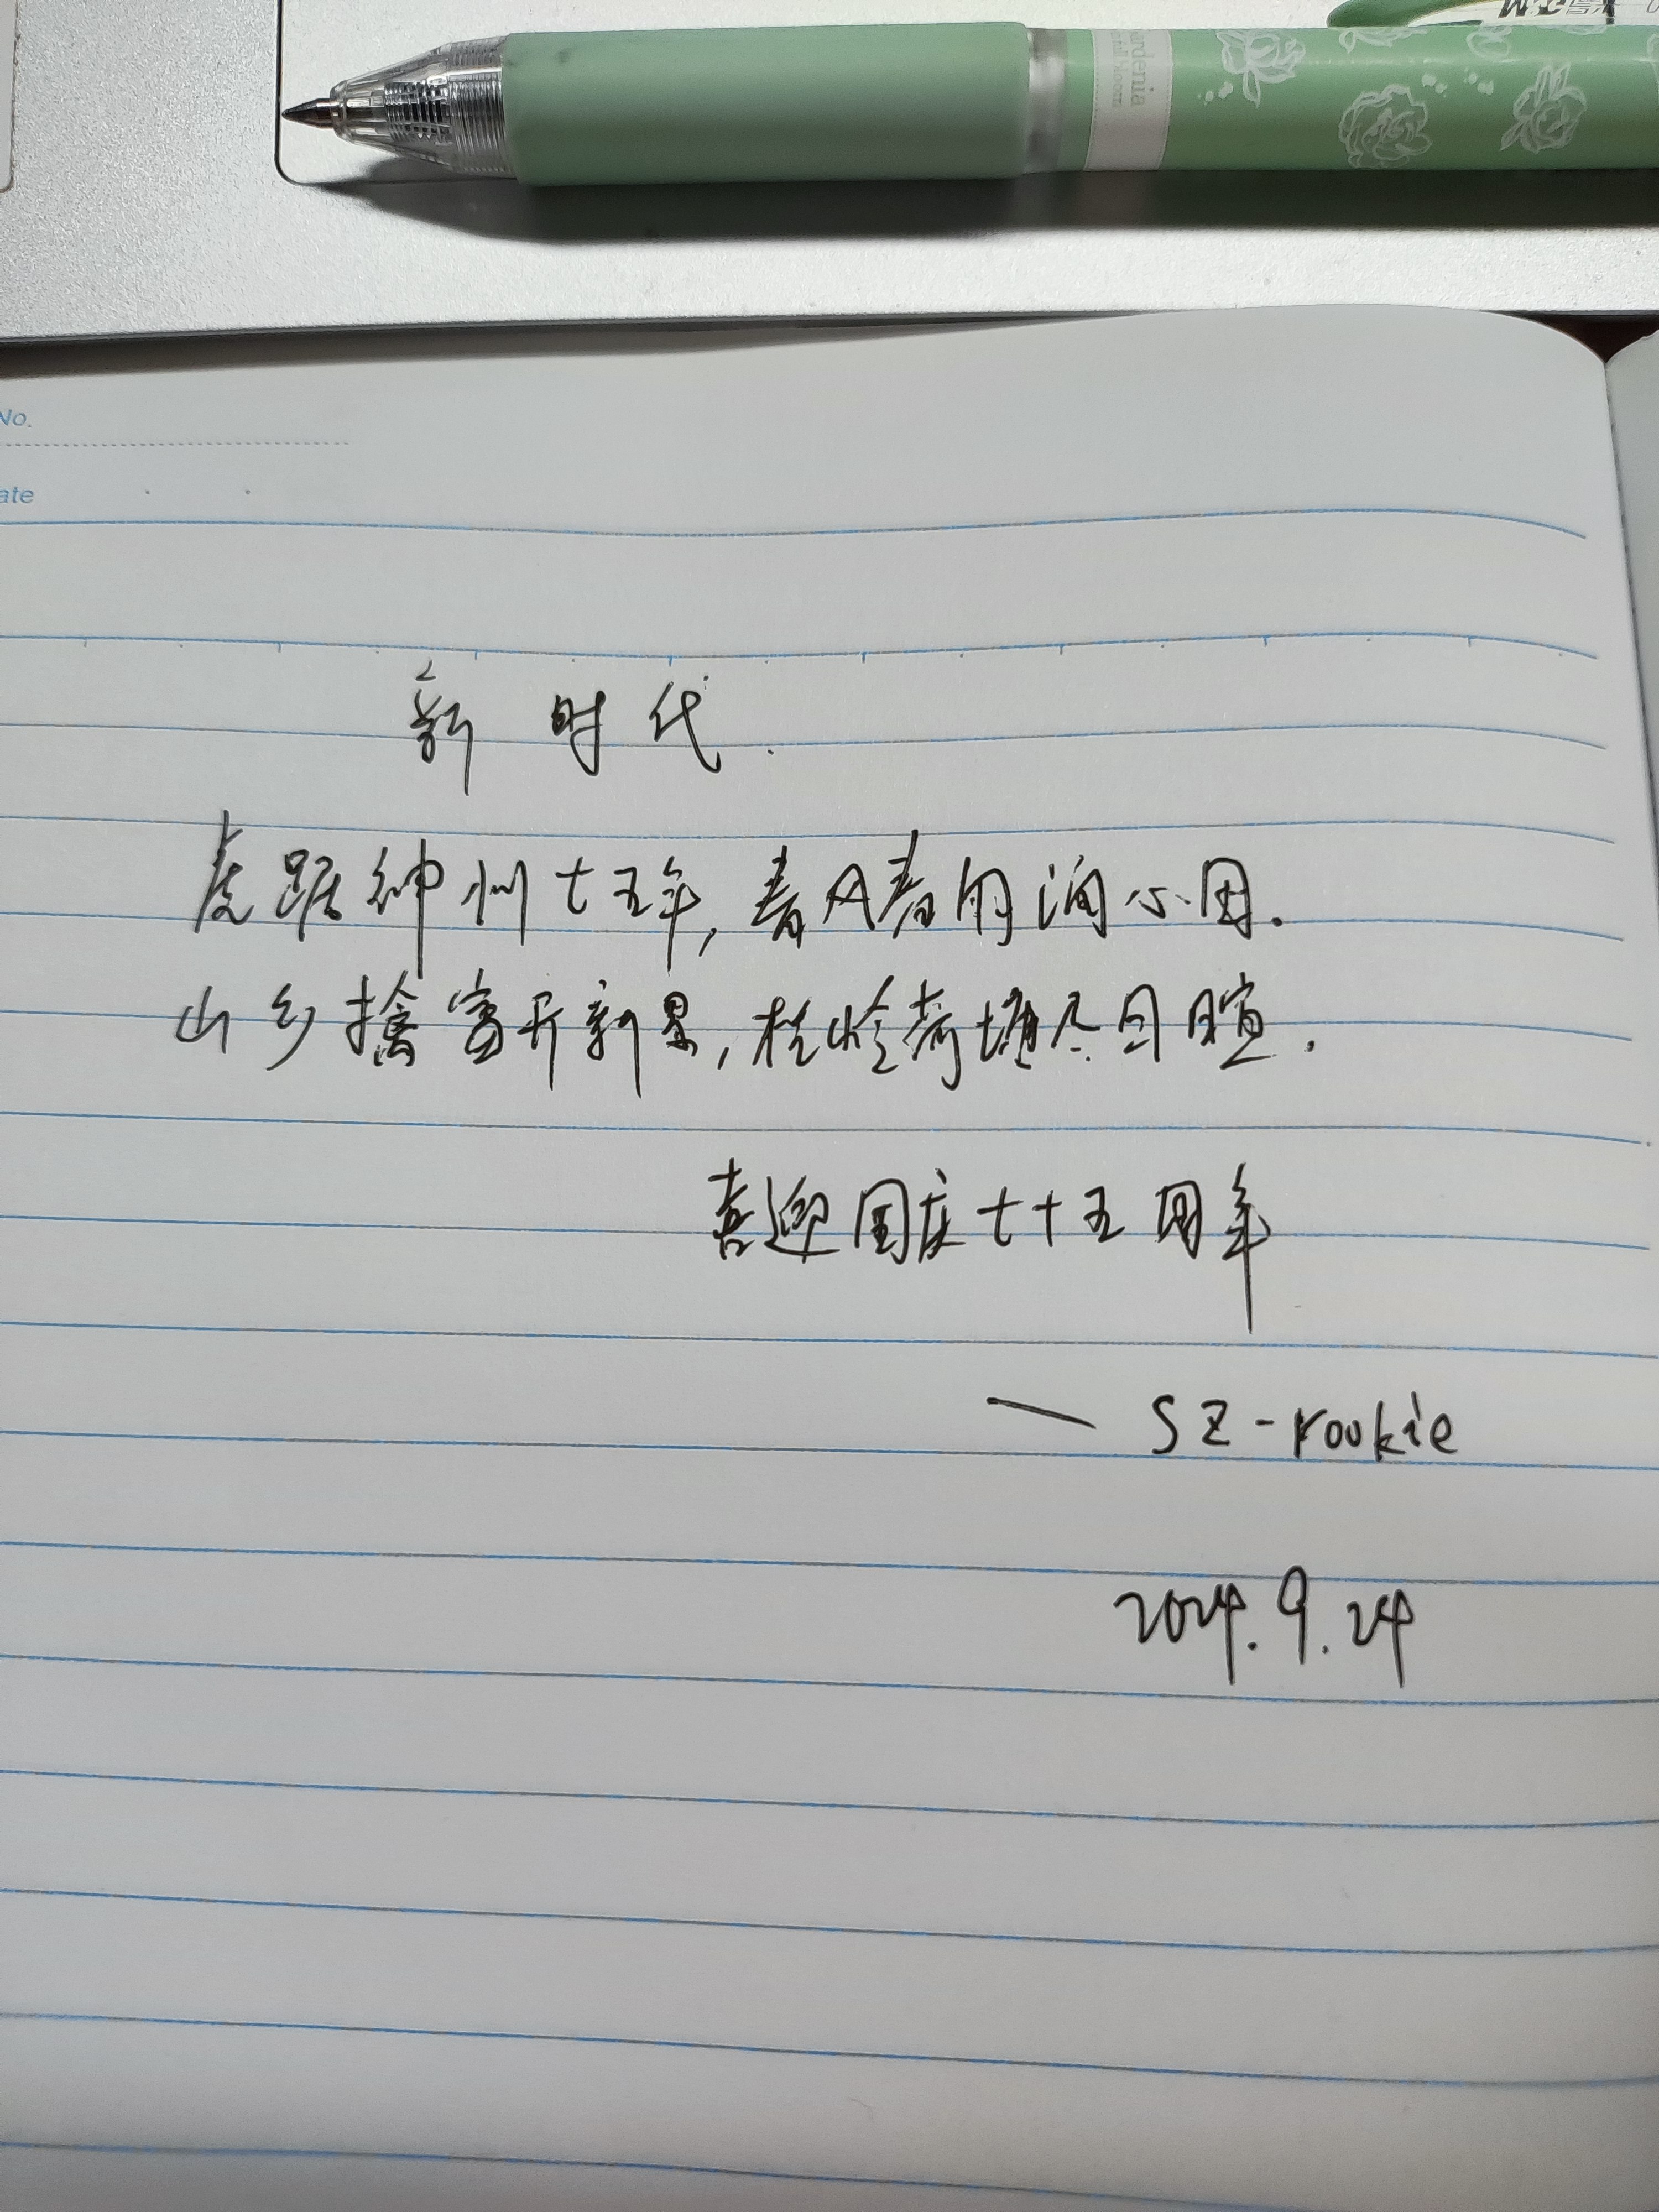 M&G
rdenia
No.
ate
新时代
虎踞神州七五年,春风春雨润心田.
山乡擒富开新景,桂岭荷塘尽日暄.
喜迎国庆七十五周年
— SZ-rookie
2024.9.24